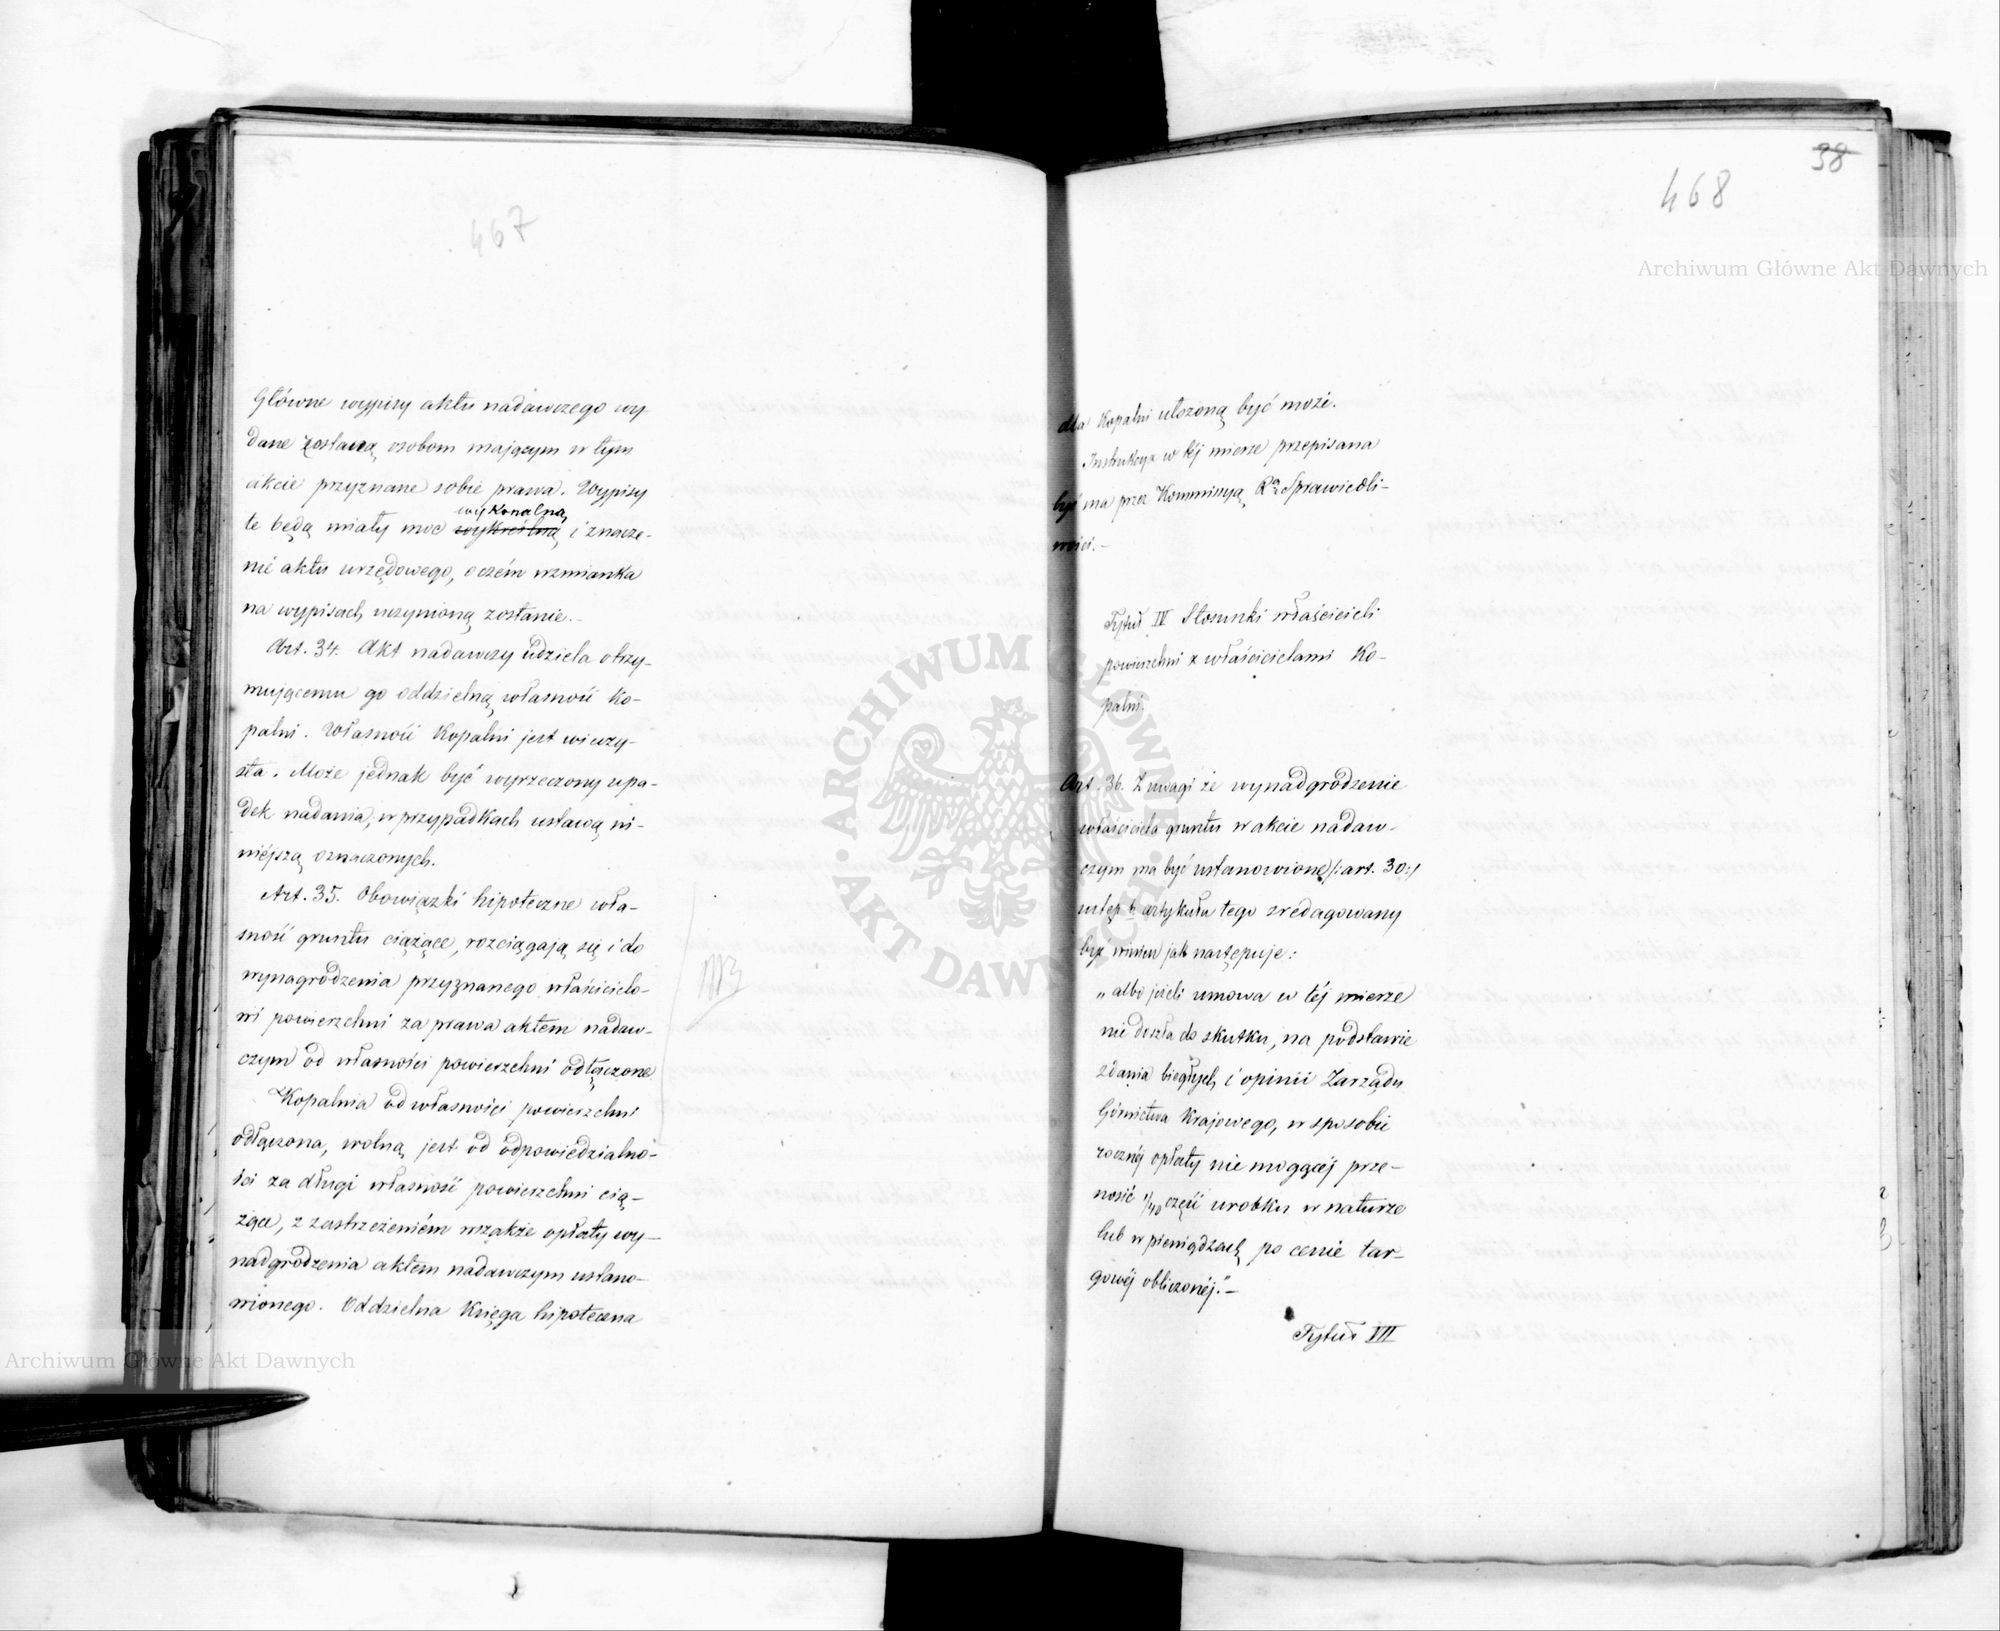 467
Główne wypisy aktu nadawczego wy
dane zostaną osobom mającym w tym
akcie przyznane sobie prawa. Wypisy
wykonalną
te będą miały moc wykreślną i znacze-
nie aktu urzędowego, o czém wzmianka
na wypisach uczynioną zostanie.-
Art. 34. Akt nadawczy udziela otrzy-
mującemu go oddzielną własność Ko-
palni. Własność Kopalni jest wieczy-
sta. Może jednak być wyrzeczony upa-
dek nadania, w przypadkach ustawą ni-
niejszą oznaczonych.
Art. 35. Obowiązki hipoteczne wła-
sność gruntu ciążące, rozciągają się i do
wynagrodzenia przyznanego właścicielo-
wi powierzchni za prawa aktem nadaw-
czym od własności powierzchni odłączone
Kopalnia od własności powierzchni
odłączona, wolną jest od odpowiedzialno-
ści za długi własność powierzchni cią-
żące, z zastrzeżeniém wszakże opłaty wy-
nadgrodzenia aktem nadawczym ustano-
wionego. Oddzielna Księga hipoteczna
38
468
dla Kopalni ułożoną być może.
Instrukcya w téj mierze przepisana
być ma przez Kommissyą Rą Sprawiedli-
wości.-
Tytuł IV Stosunki właścicieli
powierzchni z właścicielami Ko-
palni.
Art. 36. Z uwagi że wynadgrodzenie
właściciela gruntu w akcie nadaw-
czym ma być ustanowione /:art. 30:/
ustęp b artykułu tego zredagowany
być winien jak następuje:
„albo jeżeli umowa w téj mierze
nie doszła do skutku, na podstawie
zdania biegłych i opinii Zarządu
Górnictwa Krajowego, w sposobie
rocznéj opłaty nie mogącéj prze-
nosić 1/40 części urobku w naturze
lub w pieniądzach po cenie tar-
gowéj obliczonéj."-
Tytuł VII
Archiwum Główne Akt Dawnych
Archiwum Główne Akt Dawnych
ARCHIWUM GŁÓWNE · AKT DAWNYCH ·